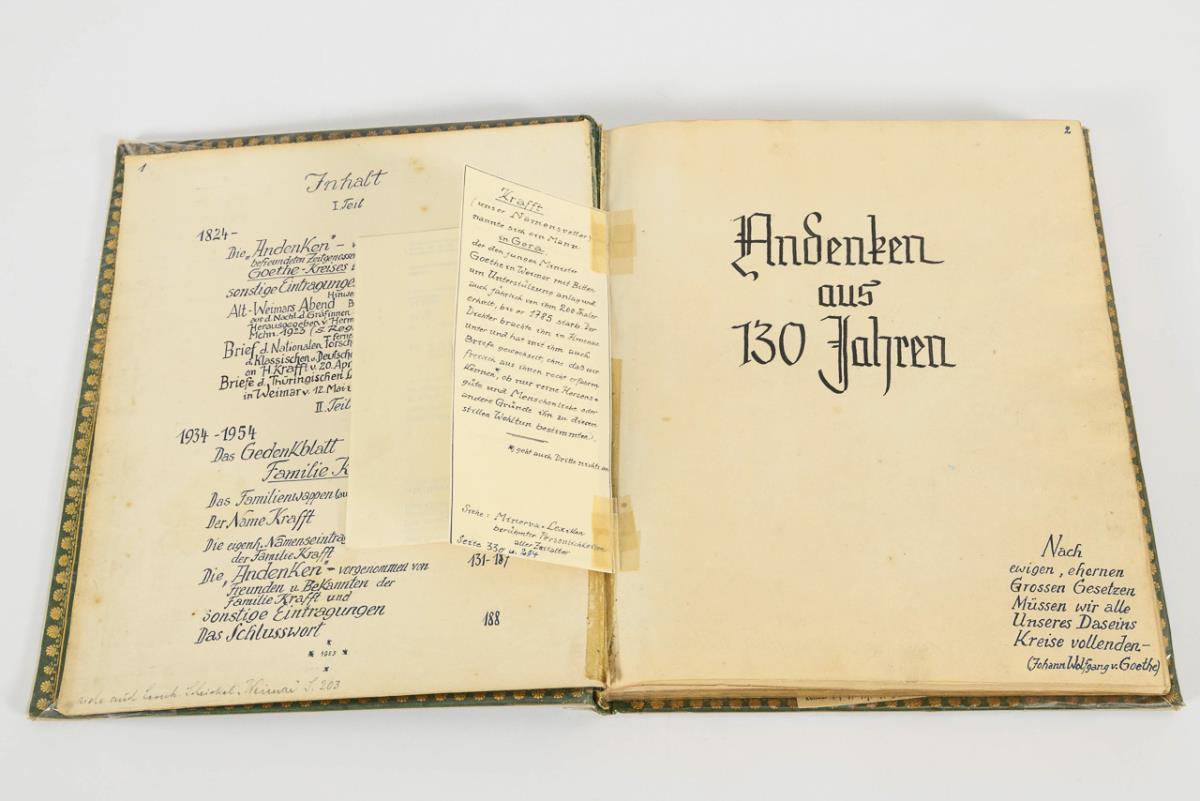 1
Inhalt
I. Teil
1824-
Die „Andenken" -
befreundeten Zeitgenossen
Goethe-Kreises
sonstige Eintragungen
Alt-Weimars Abend
Hinwe
aus d. Nachl. d. Gräfinnen
Herausgegeben v. Herm
Mchn. 1923 (s. Reg
ferne
Brief d. Nationalen Forsch
d. Klassischen u. Deutsche
an H. Krafft v. 20. Apr
Briefe d. Thüringischen L
in Weimar v. 12. Mai
II. Teil
1934-1954
Das Gedenkblatt
Familie K
Das Familienwappen
Der Name Krafft
Die eigenh. Namenseintra
der Familie Krafft
Die „Andenken" - vorgenommen von
Freunden u. Bekannten der
Familie Krafft und
131-187
sonstige Eintragungen
Das Schlusswort
188
* 1953 *
*
Weimar S. 203
Krafft
(unser Namensvetter)
nannte sich ein Mann
in Gera
der den jungen Minister
Goethe in Weimar mit Bitten
um Unterstützung anlag und
auch jährlich von ihm 200 Thaler
erhielt, bis er 1785 starb. Der
Dichter brachte ihn in Ilmenau
unter und hat mit ihm auch
Briefe gewechselt, ohne daß wir
freilich aus ihnen recht erfahren
können*, ob nur reine Herzens=
güte und Menschenliebe oder
andere Gründe ihn zu diesem
stillen Wohltun bestimmten.
*) geht auch Dritte nichts an
Siehe: Minerva-Lexikon
berühmter Persönlichkeiten
aller Zeitalter
Seite 330 u. 264
2
Andenken
aus
130 Jahren
Nach
ewigen, ehernen
Grossen Gesetzen
Müssen wir alle
Unseres Daseins
Kreise vollenden.-
(Johann Wolfgang v. Goethe)